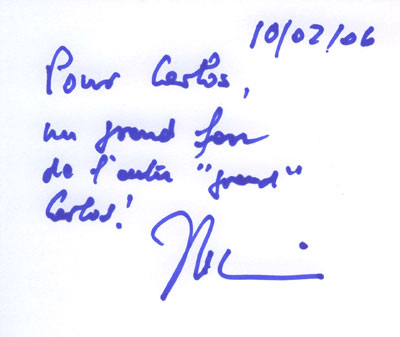 10/02/06
Pour Carlos,
un grand fan
de l'autre "grand"
Carlos!